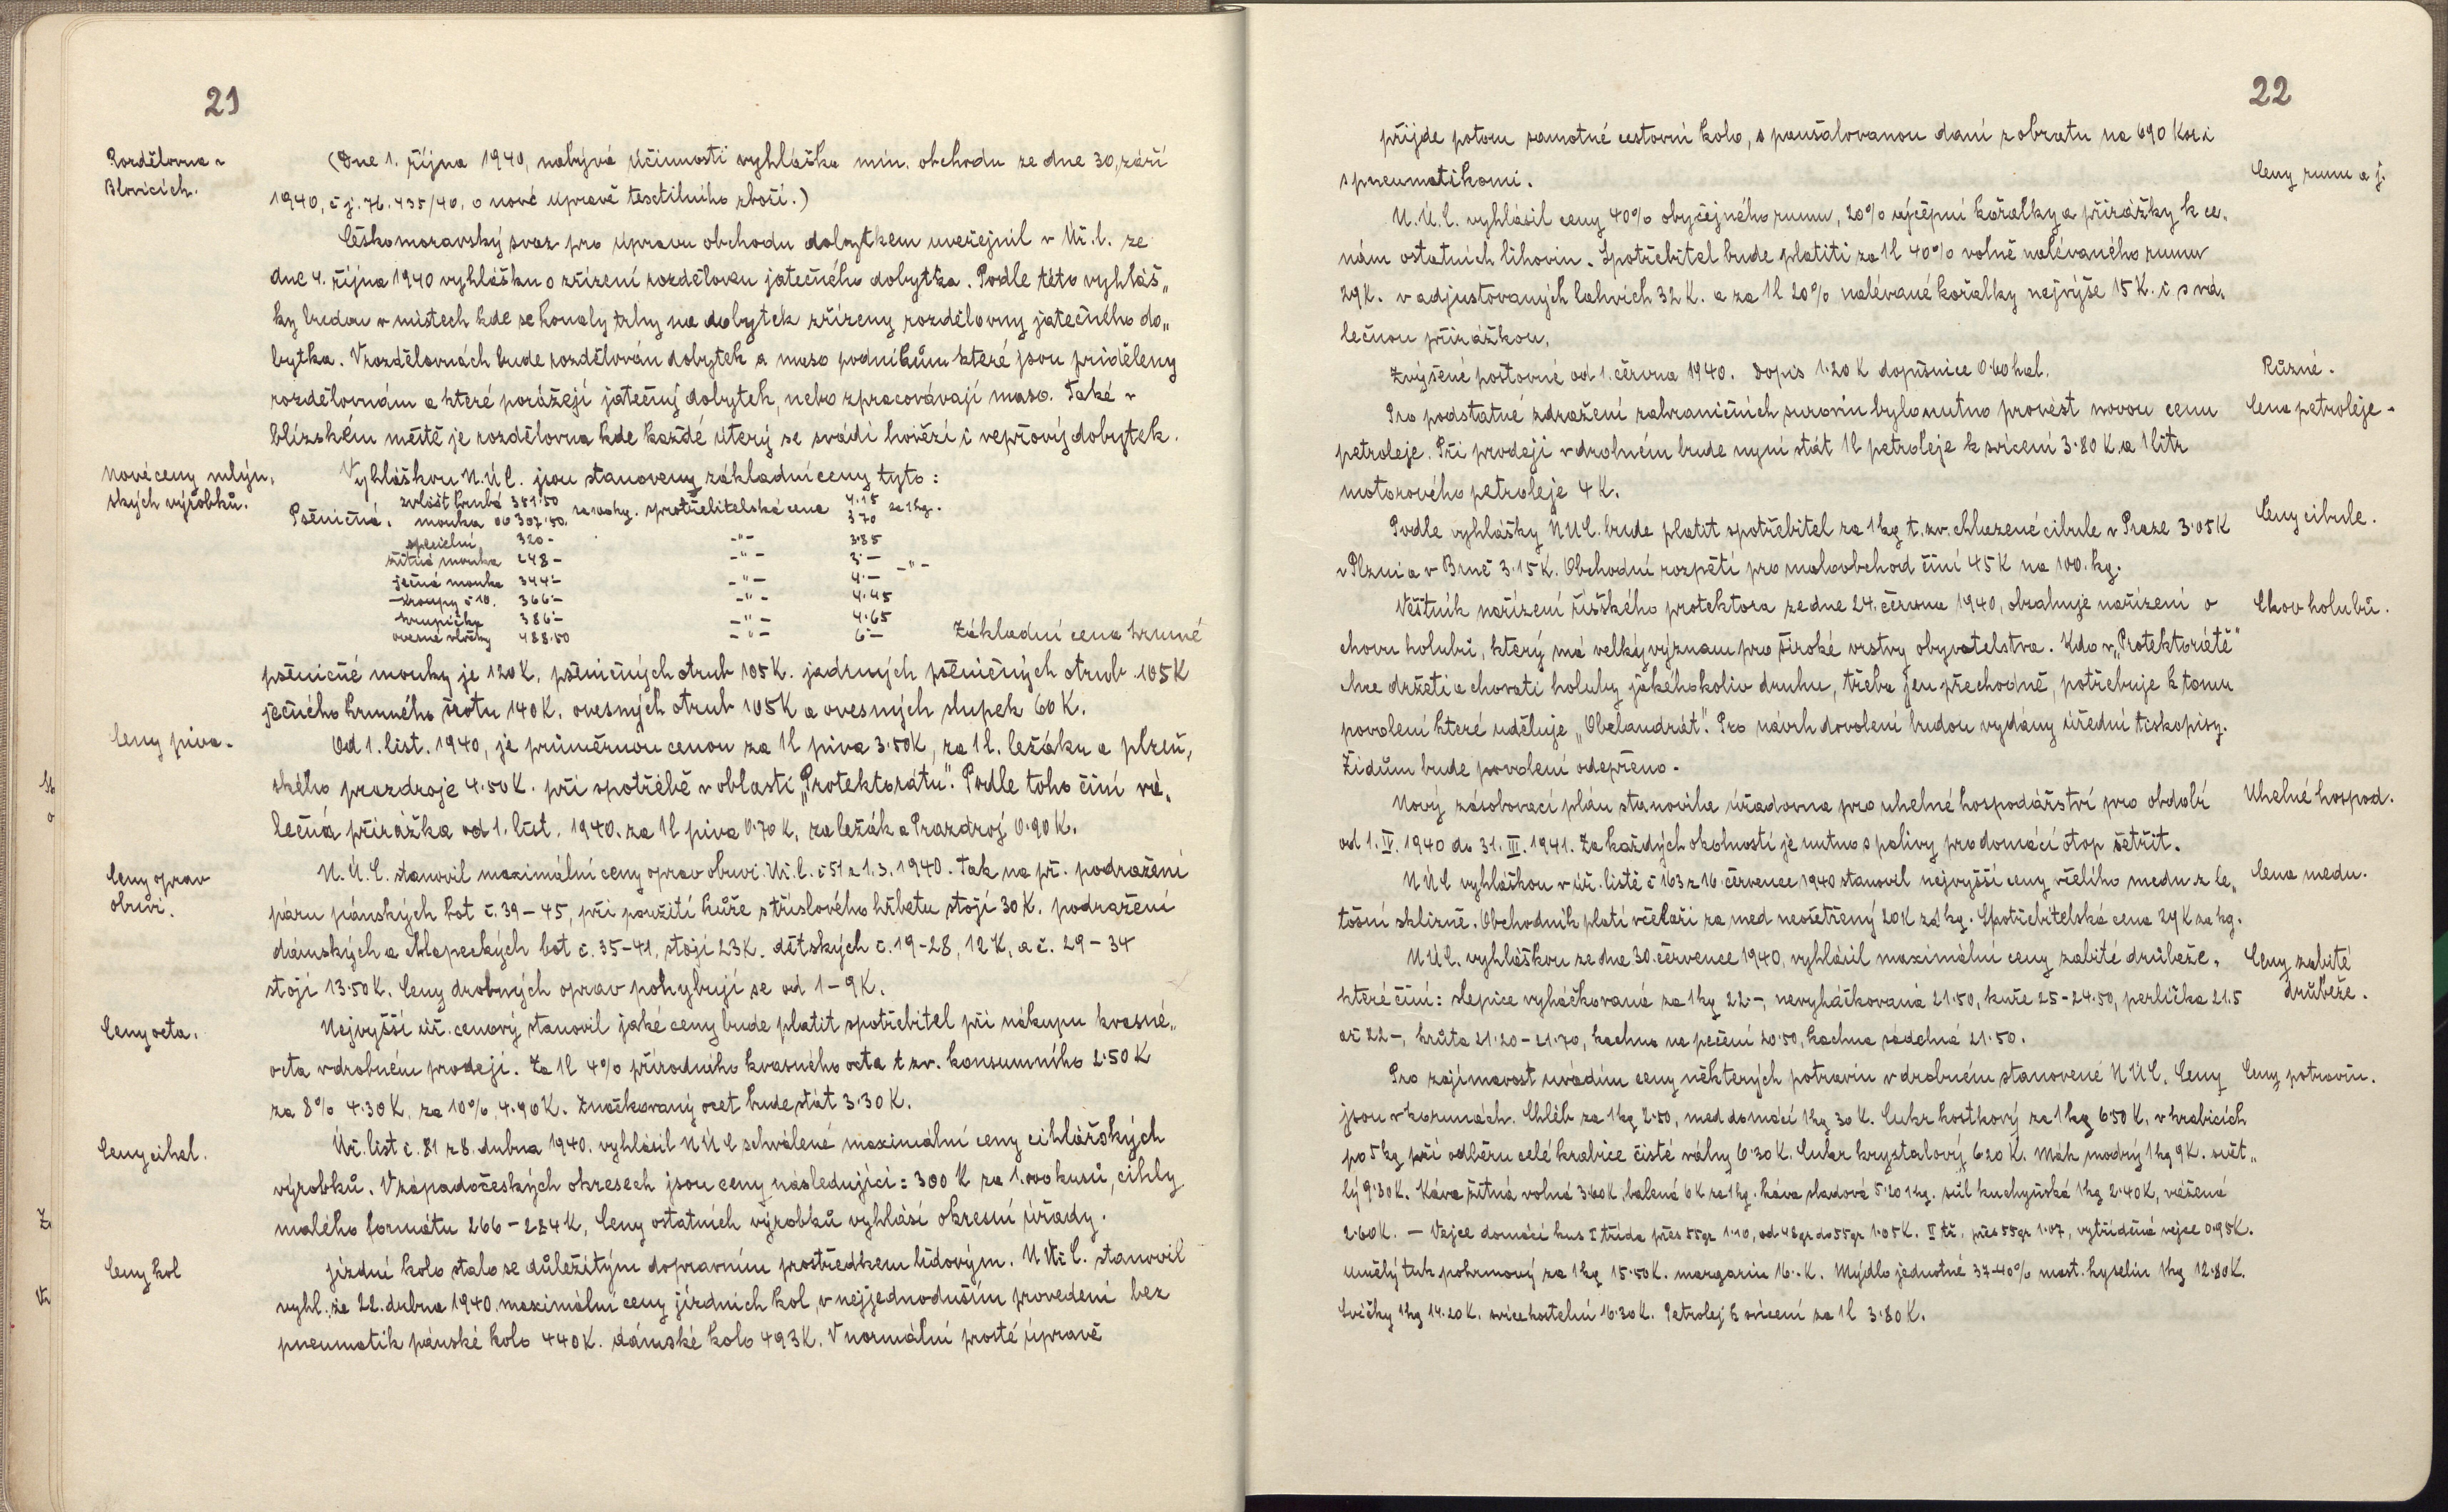 21
Rozdělovna v
Blovicích.
(Dne 1. října 1940, nabývá účinnosti vyhláška min. obchodu ze dne 30. září
1940, č j. 76.435/40, o nové úpravě textilního zboží.)
Českomoravský svaz pro úpravu obchodu dobytkem uveřejnil v Úř. l. ze
dne 4. října 1940 vyhlášku o zřízení rozděloven jatečného dobytka. Podle této vyhláš„
ky budou v místech kde se konaly trhy na dobytek zřízeny rozdělovny jatečného do„
bytka. V rozdělovnách bude rozdělován dobytek a maso podnikům které jsou přiděleny
rozdělovnám a které porážejí jatečný dobytek, nebo zpracovávají maso. Také v
blízském městě je rozdělovna kde každé úterý se svádí hovězí i vepřový dobytek.
Nové ceny mlýn„
ských výrobků.
Vyhláškou N.Ú.C. jsou stanoveny základní ceny tyto:
zvlášť hrubá 351·50 4·15
Pšeničná. mouka 307·50. spotřebitelská cena 370 za 1 kg.
specielní 320- -"- 3·85
žitná mouka 248- -"- 3·—
ječná mouka 344·- -"- 4·— -"-
kroupy č 10. 366·- -"- 4·45
krupička 386·- -"- 4·65
ovesné vločky 488·50 -"- 6·— Základní cena krmné
pšeničné mouky je 120K, pšeničných otrub 105K. jadrných pšeničných otrub 105K
ječného krmného šrotu 140K. ovesných otrub 105K a ovesných slupek 60K.
Ceny piva.
Od 1. list. 1940, je průměrnou cenou za 1l piva 3·50K, za 1l. ležáku a plzeň„
ského prazdroje 4·50K. při spotřebě v oblasti „Protektorátu“. Podle toho činí vá„
lečná přirážka od 1. list. 1940. za 1l piva 0·70K, za ležák a Prazdroj 0·90K.
Ceny oprav
obuvi.
N.Ú.C. stanovil maximální ceny oprav obuvi. Úř. l. č 51 z 1.3.1940. Tak na př. podražení
páru pánských bot č. 39-45, při použití kůže s tříslového hřbetu stojí 30K. podražení
dámských a chlapeckých bot č. 35-41, stojí 23K. dětských č. 19-28, 12K, a č. 29-34
stojí 13·50K. Ceny drobných oprav pohybují se od 1-9K.
Ceny octa.
Nejvyšší úř. cenový stanovil jaké ceny bude platit spotřebitel při nákupu kvasné„
octa v drobném prodeji. Za 1l 4% přírodního kvasného octa t zv. konsumního 2·50K
za 8% 4·30K, za 10%, 4·90K. Značkovaný ocet bude stát 3·30K.
Ceny cihel.
Úř. list č. 81 z 8. dubna 1940. vyhlásil N Ú C schválené maximální ceny cihlářských
výrobků. V západočeských okresech jsou ceny následující: 300 K za 1.000 kusů, cihly
malého formátu 266-284K, Ceny ostatních výrobků vyhlásí okresní úřady.
Ceny kol
Jízdní kolo stalo se důležitým dopravním prostředkem lidovým. N.Úř C. stanovil
vyhl. ze 22. dubna 1940 maximální ceny jízdních kol, v nejjednodušším provedení bez
pneumatik pánské kolo 440K. dámské kolo 493K. V normální prosté úpravě
22
přijde potom samotné cestovní kolo, s paušalovanou daní z obratu na 690 Kor i
s pneumatikami.
Ceny rumu a j.
N.Ú.C. vyhlásil ceny 40% obyčejného rumu, 20% výčepní kořalky a přirážky k ce„
nám ostatních lihovin. Spotřebitel bude platiti za 1l 40% volně nalévaného rumu
29K. v adjustovaných lahvích 32K. a za 1l 20% nalévané kořalky nejvýše 15K. i s vá„
lečnou přirážkou.
Zvýšené poštovné od 1. června 1940. Dopis 1·20 K dopisnice 0·60 hal.
Různé.
Pro podstatné zdražení zahraničních surovin bylo nutno provést novou cenu
Cena petroleje.
petroleje. Při prodeji v drobném bude nyní stát 1l petroleje k svícení 3·80K. a 1 litr
motorového petroleje 4K.
Podle vyhlášky NUC. bude platit spotřebitel za 1 kg t. zv. chlazené cibule v Praze 3·05K
Ceny cibule.
v Plzni a v Brně 3·15K. Obchodní rozpětí pro maloobchod činí 45K na 100. kg.
Věstník nařízení říšského protektora ze dne 24. června 1940, obsahuje nařízení o
Chov holubů.
chovu holubů, který má velký význam pro široké vrstvy obyvatelstva. Kdo v „Protektorátě“
chce držeti a chovati holuby jakéhokoliv druhu, třeba jen přechodně, potřebuje k tomu
povolení které uděluje „Obelandrát“. Pro návrh dovolení budou vydány úřední tiskopisy.
Židům bude povolení odepřeno.
Nový zásobovací plán stanovila úřadovna pro uhelné hospodářství pro období
Uhelné hospod.
od 1. IV. 1940 do 31. III. 1941. Za každých okolností je nutno s palivy pro domácí otop šetřit.
N Ú C vyhláškou v úř. listě č 163 z 16 července 1940 stanovil nejvyšší ceny včelího medu z le„
Cena medu.
tošní sklizně. Obchodník platí včelaři za med neošetřený 20K za kg. Spotřebitelská cena 29K za kg.
N.Ú.C. vyhláškou ze dne 30. července 1940, vyhlásil maximální ceny zabité drůbeže,
Ceny zabité
drůbeže.
které činí: slepice vyháčkovaná za 1 kg 22·-, nevyháčkovaná 21·50, kuře 25-24·50, perlička 21.5
až 22-, krůta 21·20-21·70, kachna na pečení 20·50, kachna sádelná 21·50.
Pro zajímavost uvádím ceny některých potravin v drobném stanovené N Ú C. Ceny
Ceny potravin.
jsou v korunách. Chléb za 1 kg 2·50, med domácí 1 kg 30 K. Cukr kostkový za 1 kg 6·50 K, v krabicích
po 5 kg při odběru celé krabice čisté váhy 6·30K. Cukr krystalový 620 K. Mák modrý 1 kg 9K. svět„
lý 9·30K. Káva žitná volná 3·60K, balená 6K za 1 kg. káva sladová 5·20 1 kg. sůl kuchyňská 1 kg 2·40K, vážená
2·60K. — Vejce domácí kus I třída přes 55gr 1·10, od 48 gr do 55gr 1·05K. II tř. přes 55gr 1·07, vytříděná vejce 0·95K.
umělý tuk pokrmový za 1 kg 15·50K. margarin 16·-K. Mýdlo jednotné 37-40% mast. kyselin 1 kg 12·80K.
Svíčky 1 kg 14·20K. svíce kostelní 16·30K. Petrolej k svícení za 1l 3·80K.